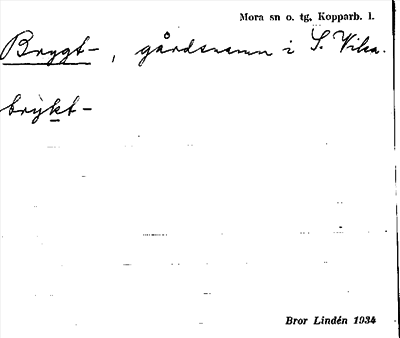 Mora sn o. tg. Kopparb. l.
Brygt-, gårdsnamn i S. Vika.
brykt-
Bror Lindén 1934